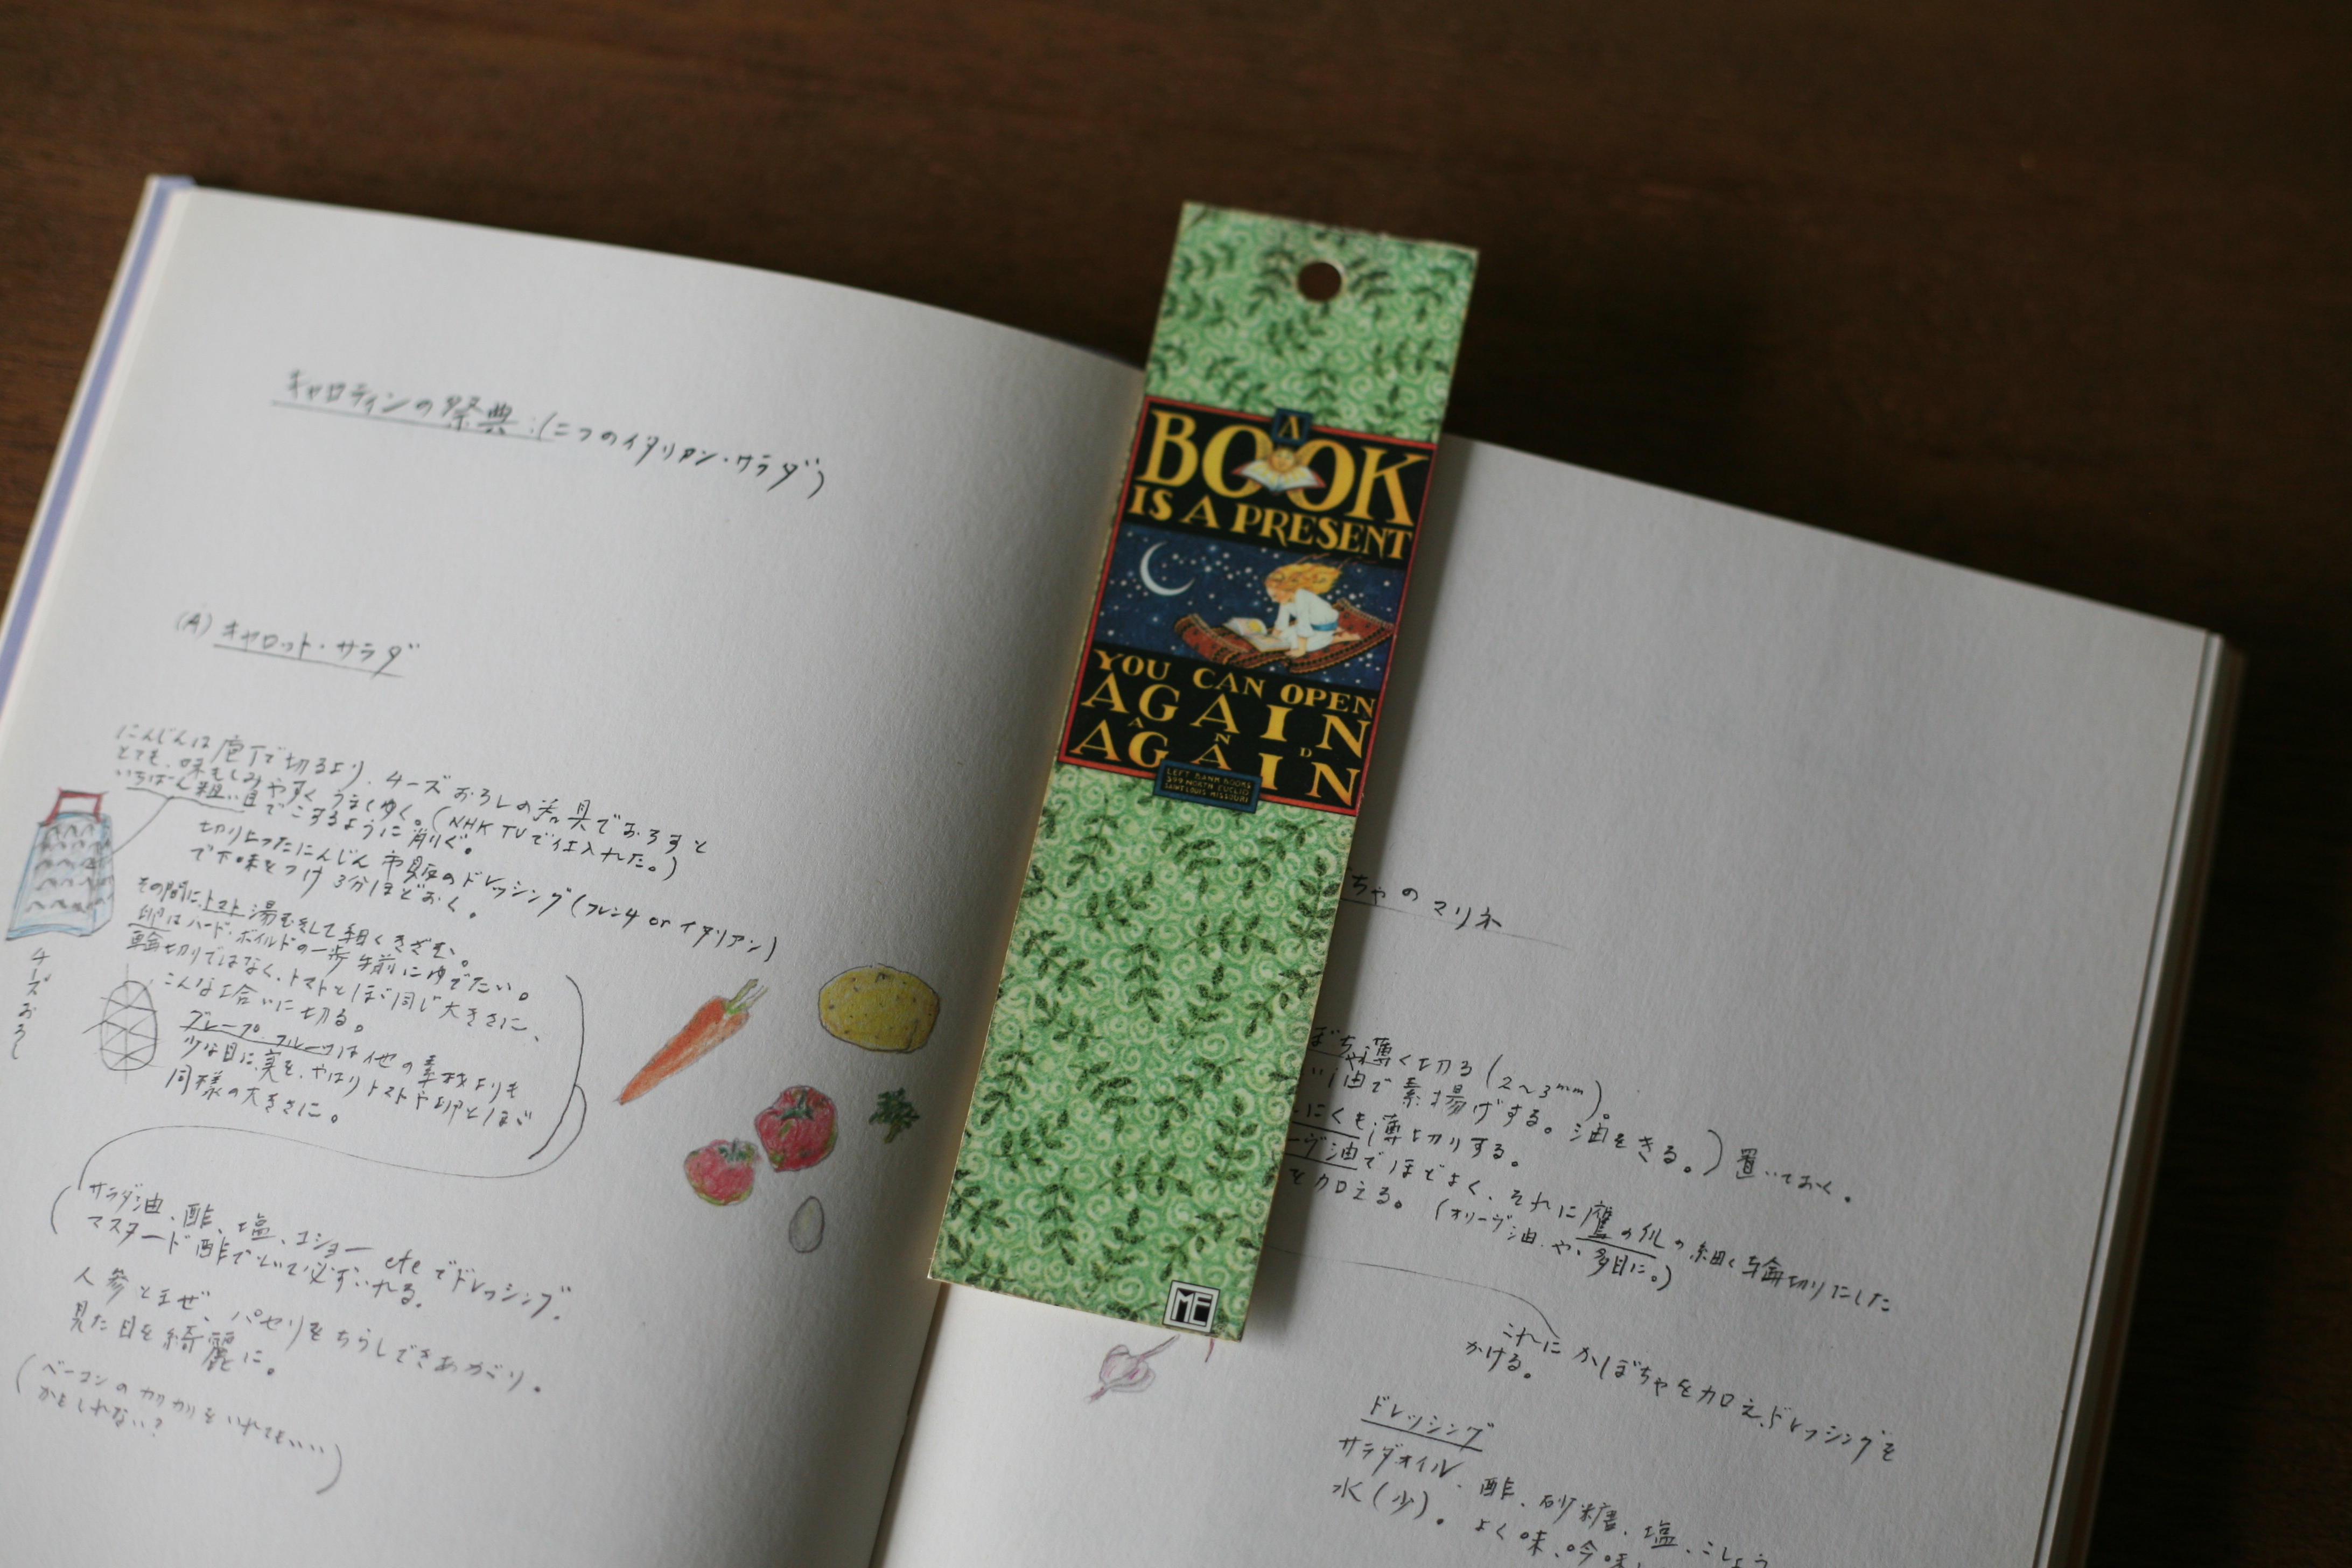 キャロティンの祭典:(二つのイタリアン・サラダ)
(A) キャロット・サラダ
にんじんは庖丁で切るより、チーズおろしの器具でおろすと
とても、味もしみやすく、うまくゆく。(NHK TVで仕入れた。)
いちばん粗い目でこするように削ぐ。
切り上ったにんじん市販のドレッシング(フレンチ or イタリアン)
で下味をつけ3分ほどおく。
その間に、トマト湯むきして細くきざむ。
卵はハード・ボイルドの一歩手前にゆでたい。
輪切りではなく、トマトとほぼ同じ大きさに、
こんな工合いに切る。
グレープ・フルーツは他の素材よりも
少な目に、実を、やはりトマトや卵とほぼ
同様の大きさに。
チーズおろし
(サラダ油、酢、塩、コショー etcでドレッシング。
マスタード酢でといて必ずいれる。
人参とまぜ、パセリをちらしてできあがり。
見た目を綺麗に。
(ベーコンのカリカリをいれてもいい
かもしれない?)
A
BOOK
IS A PRESENT
YOU CAN OPEN
AGAIN
AND
AGAIN
LEFT BANK BOOKS
399 NORTH EUCLID
SAINT LOUIS MISSOURI
ME
ちゃのマリネ
ぼちゃ薄く切る(2〜3mm)。
い油で素揚げする。油をきる。)置いておく。
にくも薄切りする。
ーヴ油でほどよく、それに鷹の爪の細く輪切りにした
を加える。(オリーヴ油、や、多目に。)
これにかぼちゃを加え、ドレッシングを
かける。
ドレッシング
サラダオイル、酢、砂糖、塩、こしょう
水(少)。よく味、吟味